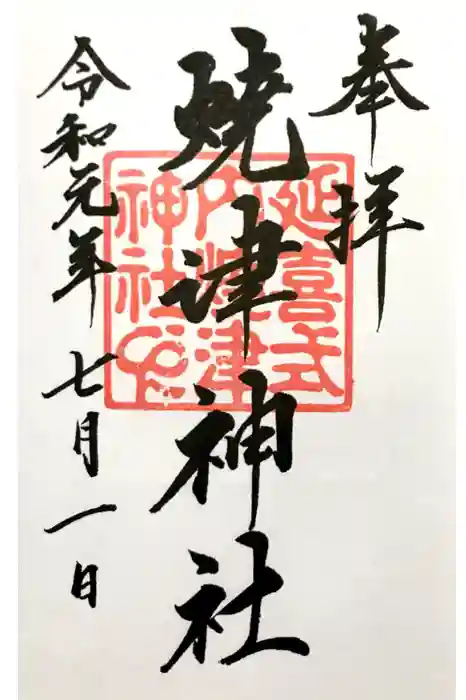 奉拝
延喜式
内焼津
神社印
焼津神社
令和元年七月一日